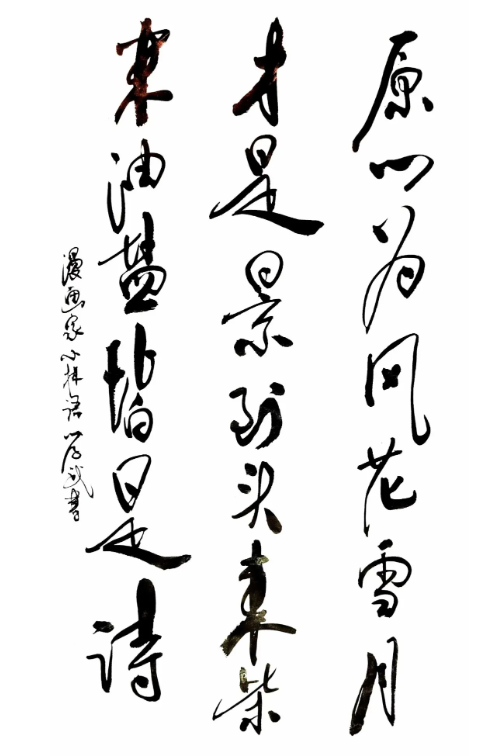 原以为风花雪月
才是景到头来柴
米油盐皆是诗
漫画家小林语 以学武书